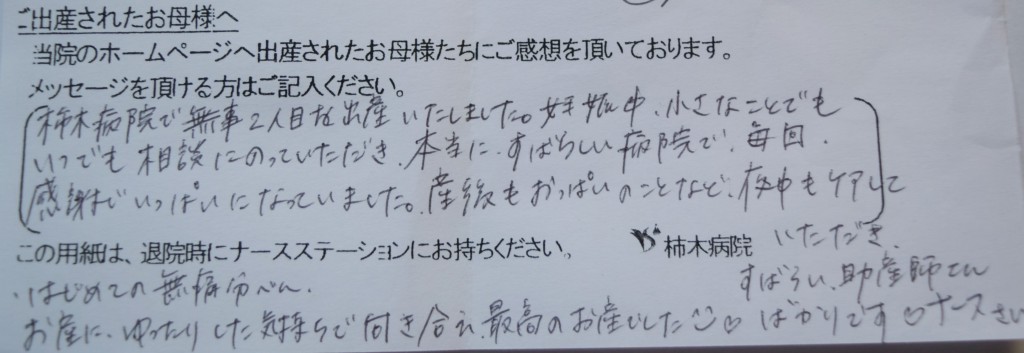 ご出産されたお母様へ
当院のホームページへ出産されたお母様たちにご感想を頂いております。
メッセージを頂ける方はご記入ください。
柿木病院で無事2人目を出産いたしました。妊娠中、小さなことでも
いつでも相談にのっていただき、本当に、すばらしい病院で、毎回、
感謝でいっぱいになっていました。産後もおっぱいのことなど、夜中もケアして
この用紙は、退院時にナースステーションにお持ちください。
柿木病院
いただき、
はじめての無痛分べん、
すばらしい、助産師さん
お産に、ゆったりした気持ちで向き合え、最高のお産でした♡
ばかりです♡ナースさん